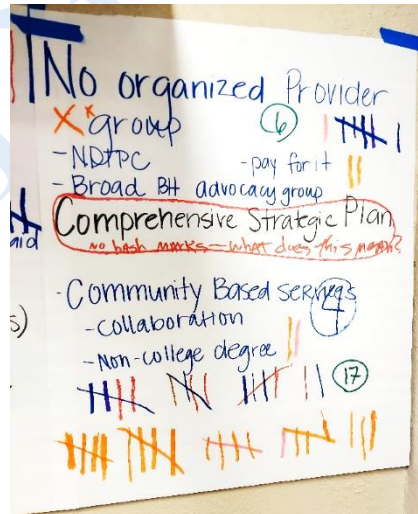 No organized Provider
X * group 6
- NDTPC - pay for it
- Broad BH advocacy group
Comprehensive Strategic Plan
no hash marks - what does this mean?
aid
- Community Based services
s) - collaboration 4
- Non-college degree
17